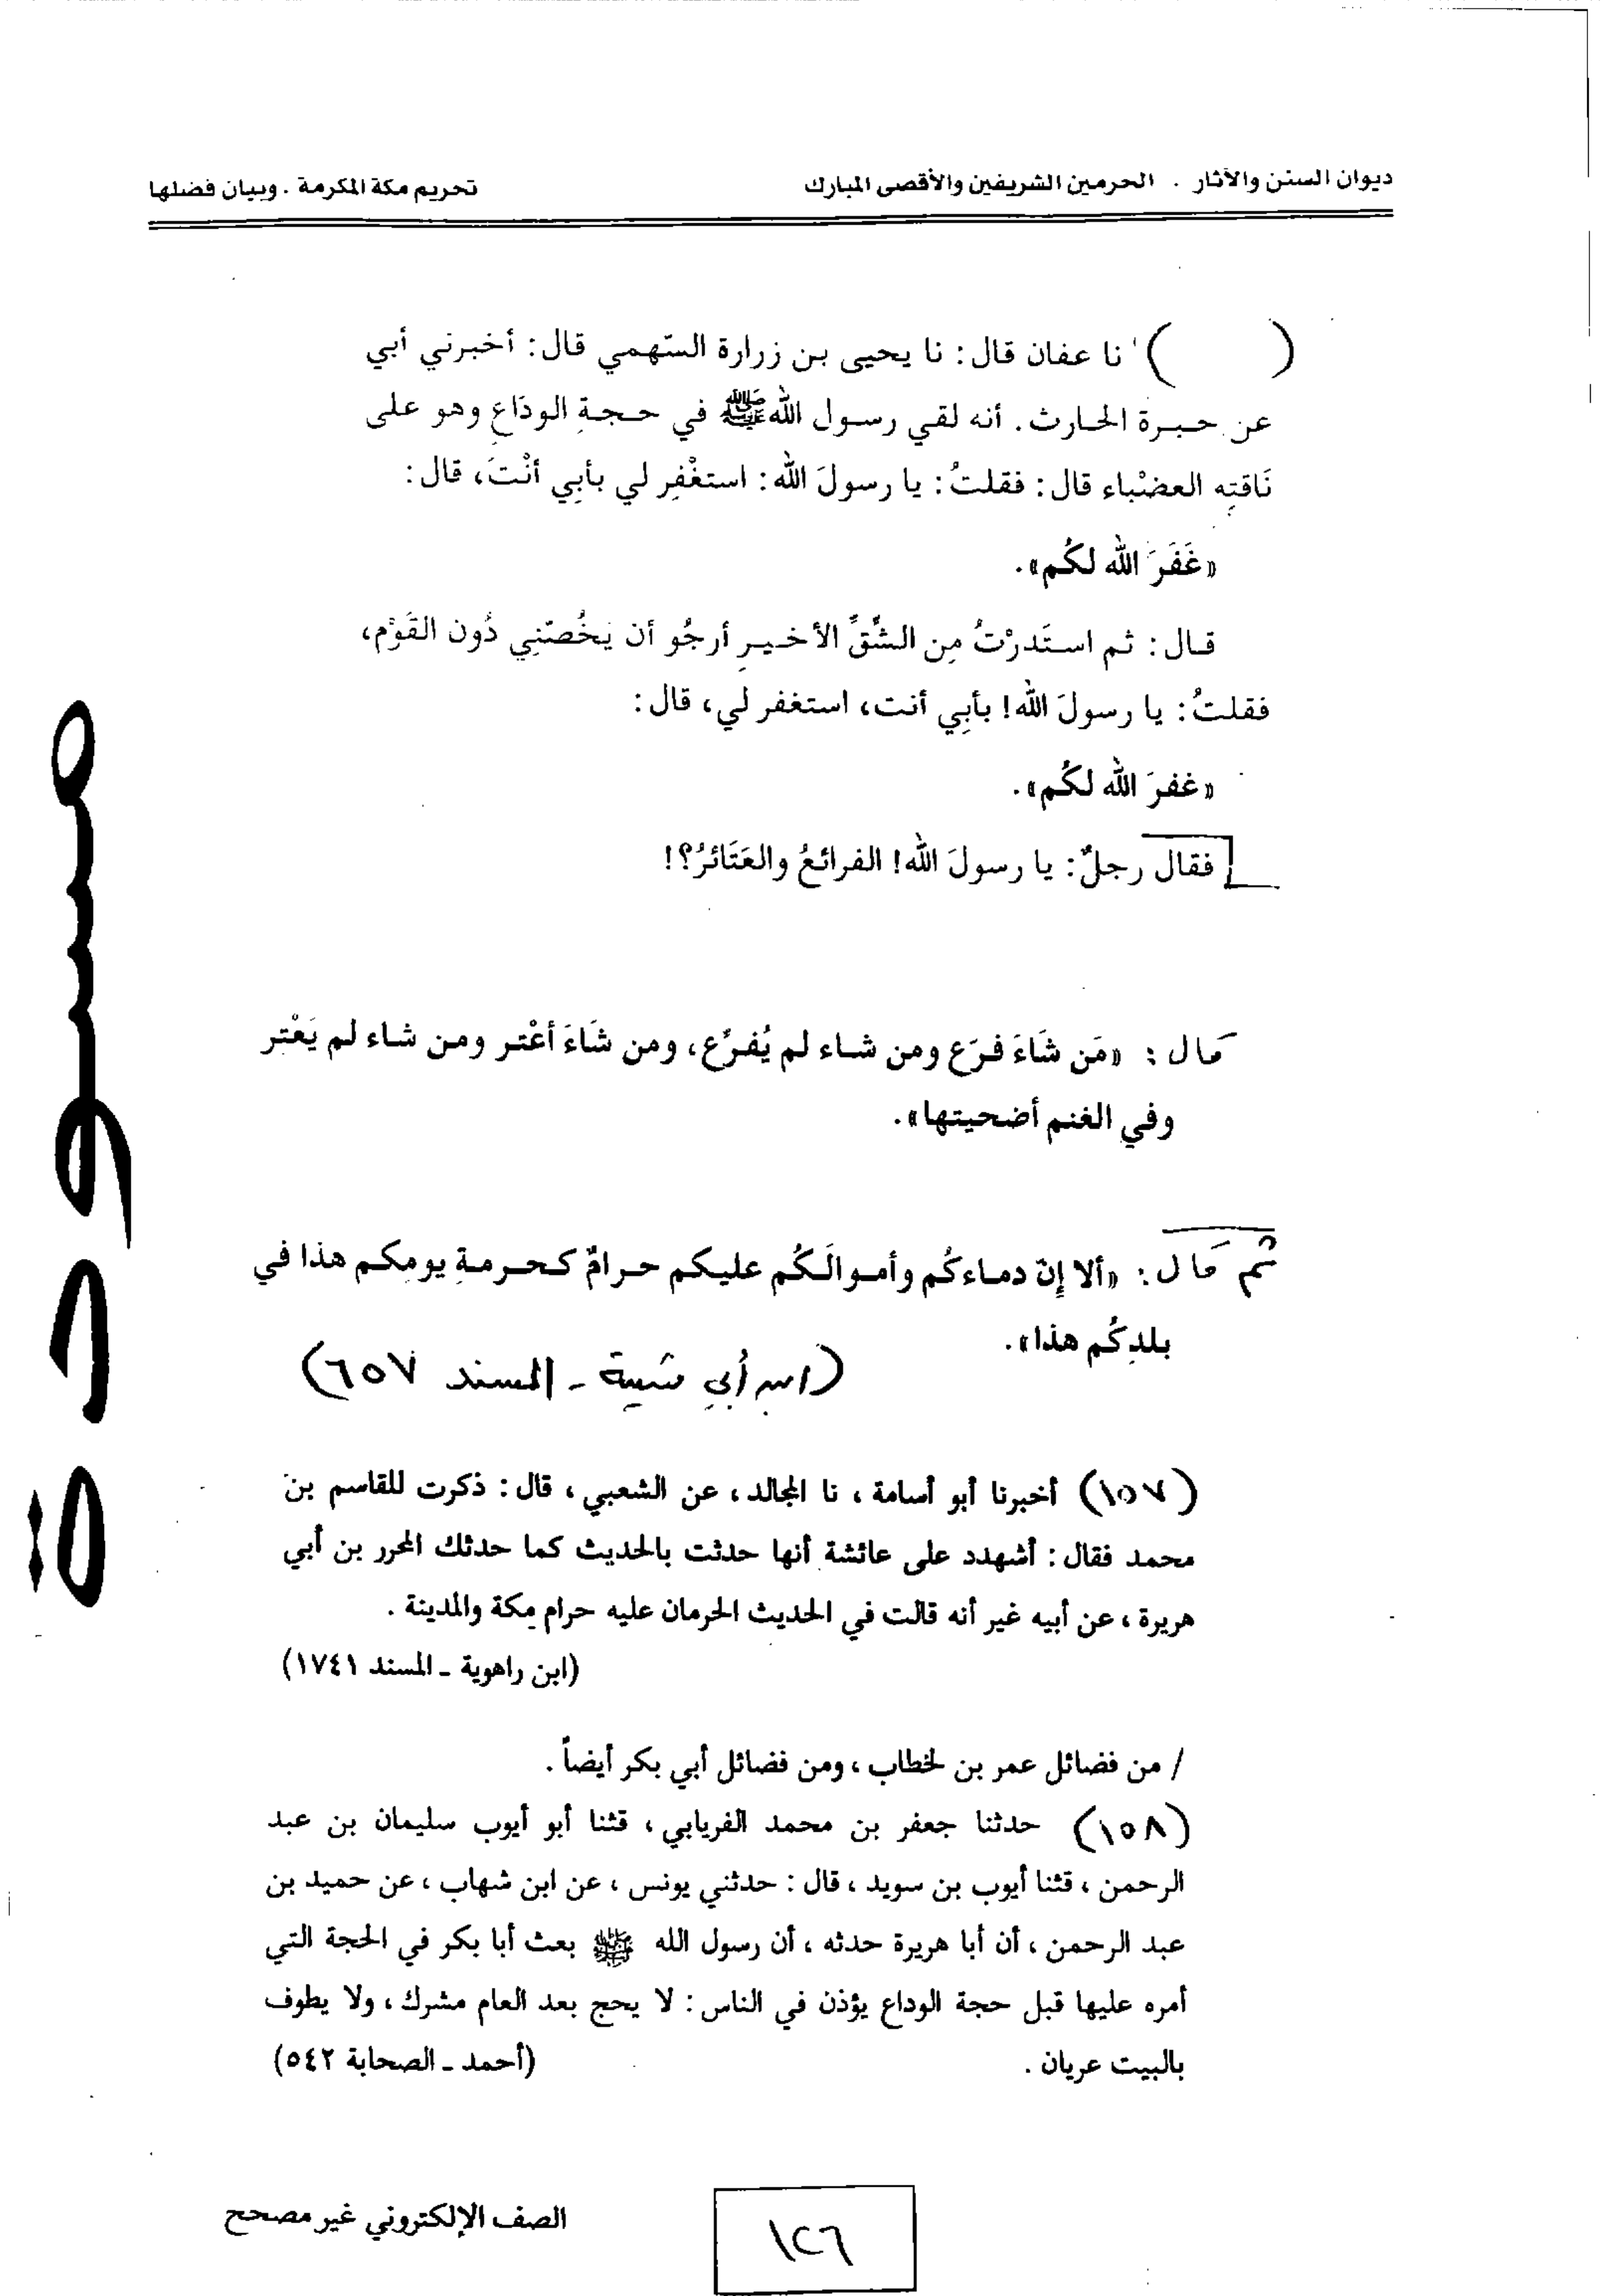 ديوان السنن والآثار . الحرمين الشريفين والأقصى المبارك
تحريم مكة المكرمة . وبيان فضلها
( ) نا عفان قال: نا يحيى بن زرارة السّهمي قال: أخبرني أبي
عن حبرة الحارث. أنه لقي رسول الله ﷺ في حجةِ الودَاعِ وهو على
نَاقتِه العضْباء قال: فقلتُ: يا رسولَ الله: استغْفِر لي بأبي أنْتَ، قال:
«غَفَرَ الله لكُم».
قال: ثم استَدرْتُ مِن الشِّقِّ الأخيرِ أرجُو أن يَخُصّنِي دُون القَوْم،
فقلتُ: يا رسولَ الله! بأبِي أنت، استغفر لي، قال:
«غفرَ الله لكُم».
فقال رجلٌ: يا رسولَ الله! الفرائعُ والعَتَائرُ؟!
قال: «مَن شَاءَ فرَع ومن شاء لم يُفرِّع، ومن شَاءَ أعْتر ومن شاء لم يَعْتِر
وفي الغنم أضحيتها».
ثم قال: «ألا إنّ دماءكُم وأموالَكُم عليكم حرامٌ كحرمةِ يومِكم هذا في
بلدِكُم هذا».
(ابن أبي شيبة - المسند ٦٥٧)
(١٥٧) أخبرنا أبو أسامة ، نا المجالد ، عن الشعبي ، قال : ذكرت للقاسم بن
محمد فقال : أشهدد على عائشة أنها حدثت بالحديث كما حدثك المحرر بن أبي
هريرة ، عن أبيه غير أنه قالت في الحديث الحرمان عليه حرام مكة والمدينة .
(ابن راهوية - المسند ١٧٤١)
/ من فضائل عمر بن لخطاب ، ومن فضائل أبي بكر أيضاً .
(١٥٨) حدثنا جعفر بن محمد الفريابي ، قثنا أبو أيوب سليمان بن عبد
الرحمن ، قثنا أيوب بن سويد ، قال : حدثني يونس ، عن ابن شهاب ، عن حميد بن
عبد الرحمن ، أن أبا هريرة حدثه ، أن رسول الله ﷺ بعث أبا بكر في الحجة التي
أمره عليها قبل حجة الوداع يؤذن في الناس : لا يحج بعد العام مشرك ، ولا يطوف
بالبيت عريان . (أحمد - الصحابة ٥٤٢)
مسودة
الصف الإلكتروني غير مصحح
١٢٦